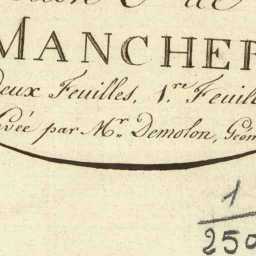 MANCHE
eux Feuilles, 1.re Feuill
vée par Mr. Demolon, Géom
1
250